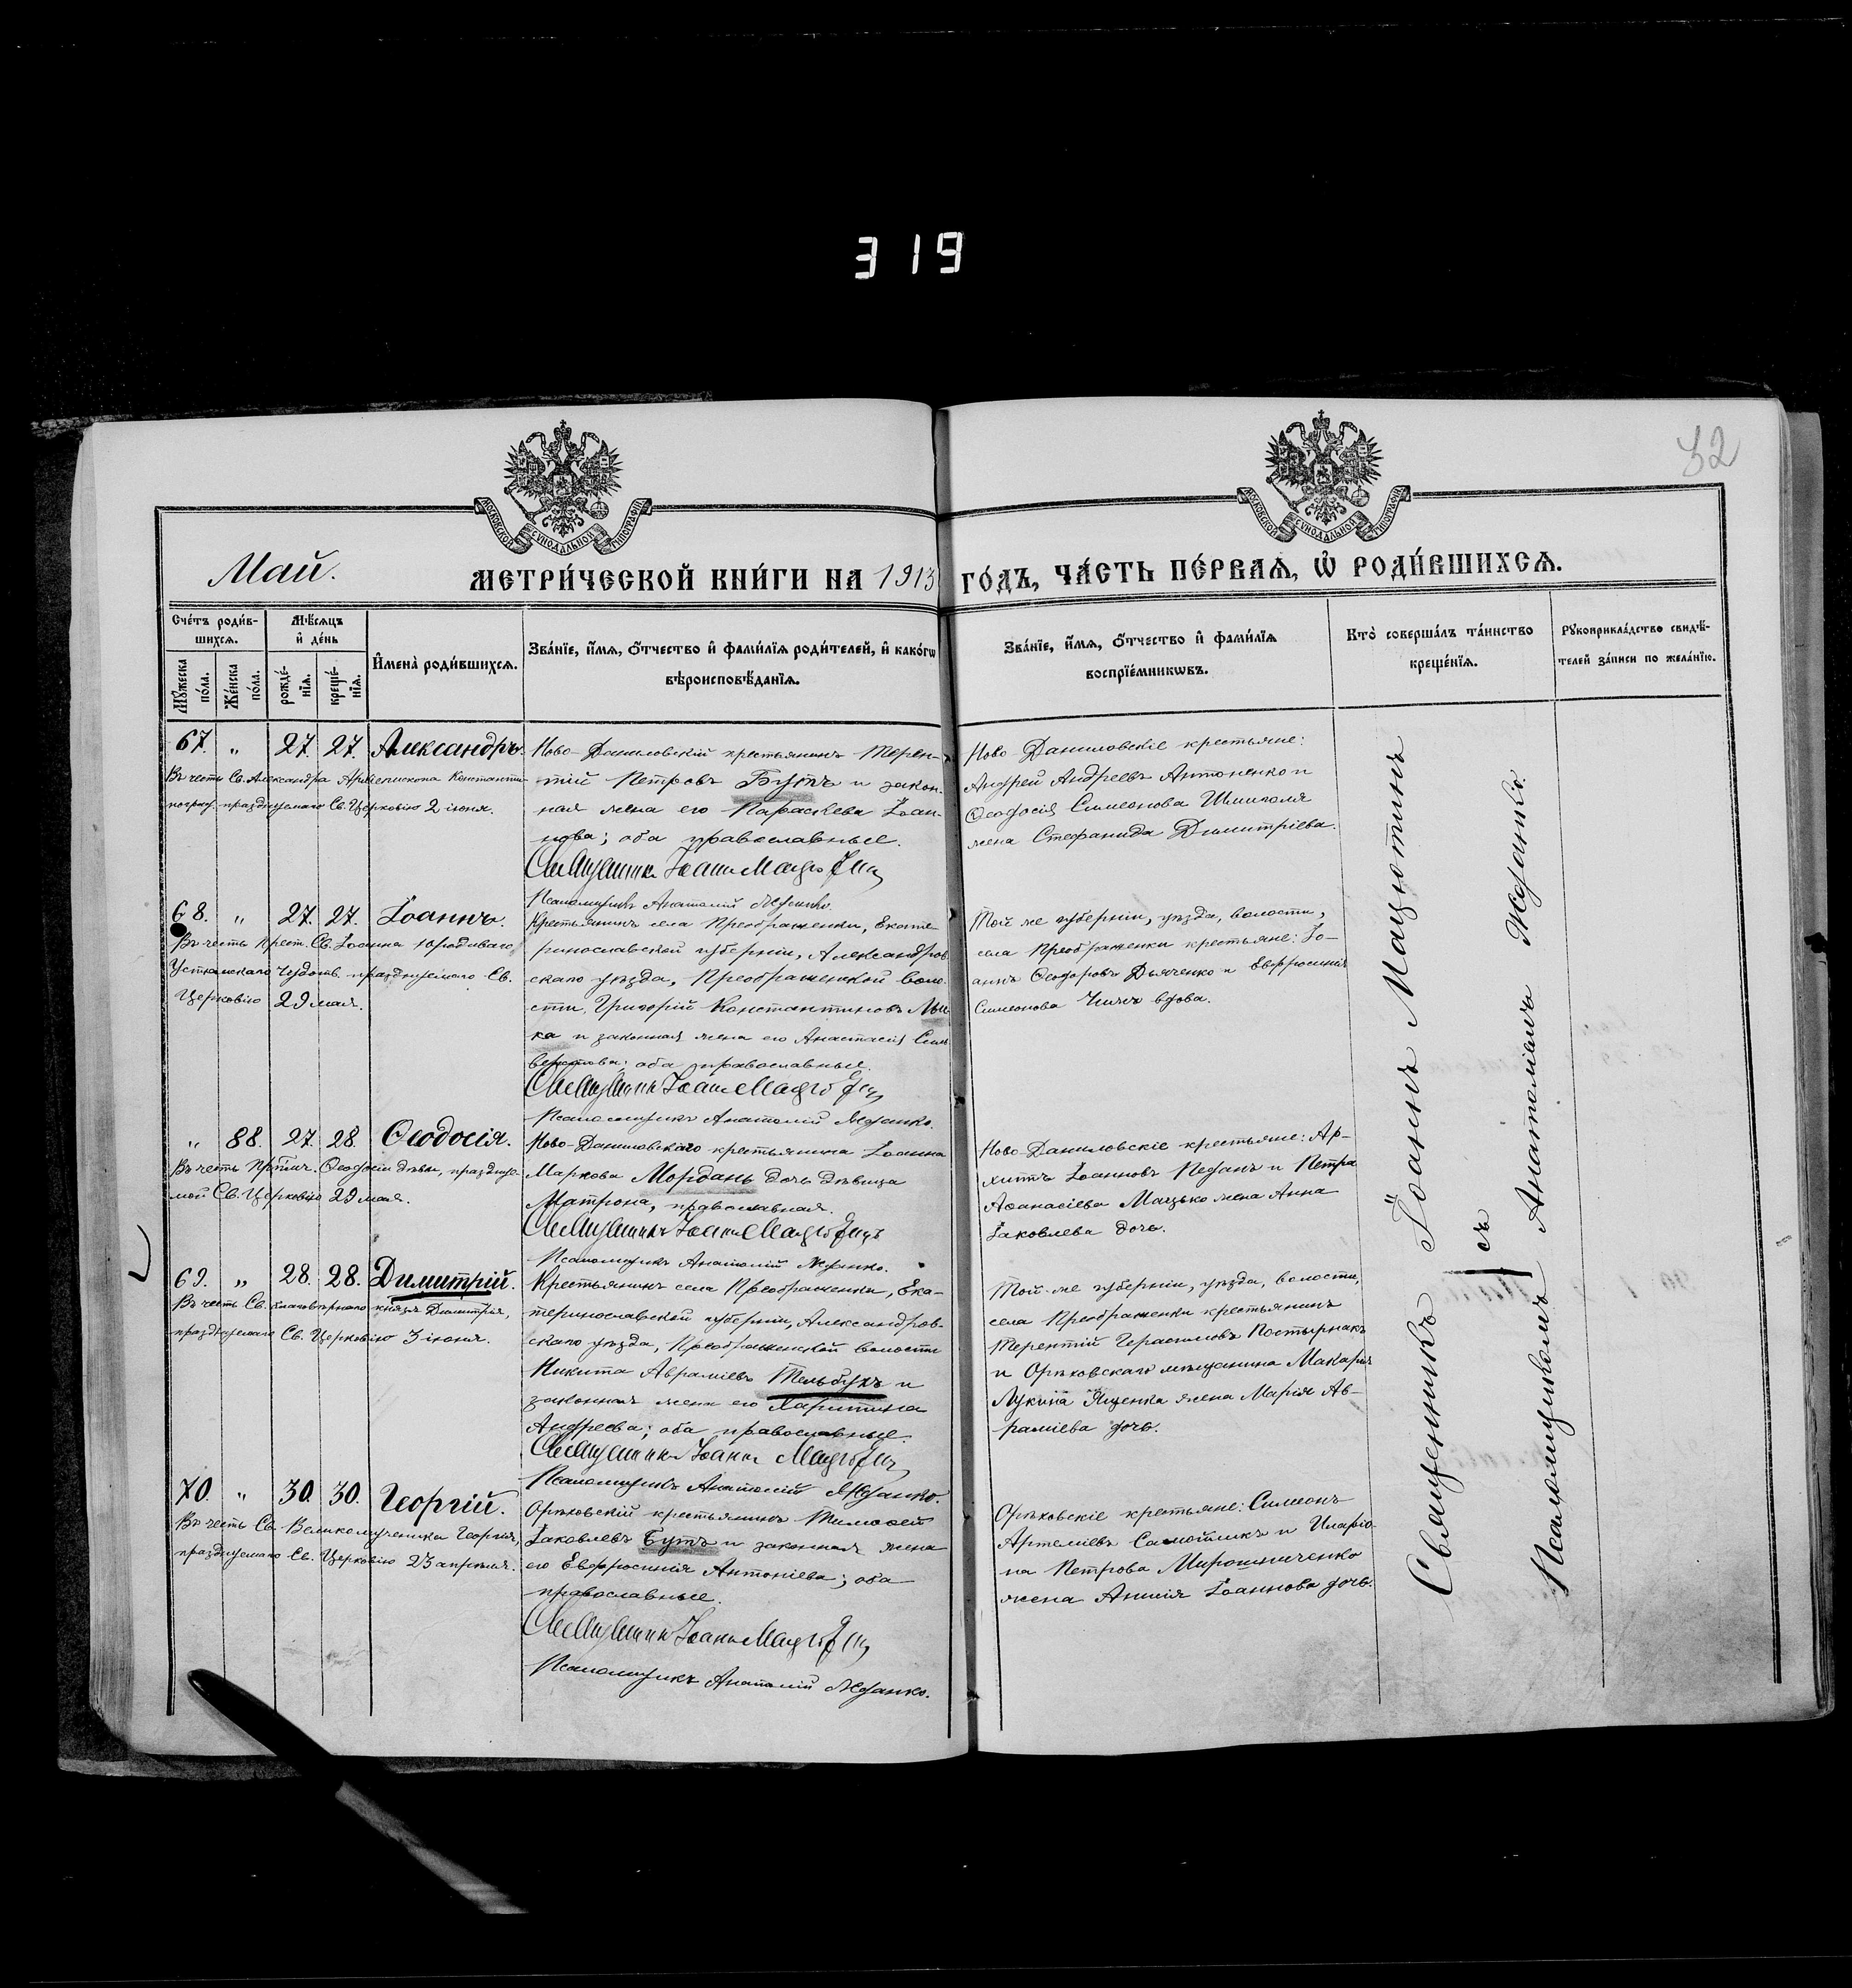 319
32
МОСКОВСКОЙ СУНОДАЛЬНОЙ ТИПОГРАФІИ
МОСКОВСКОЙ СУНОДАЛЬНОЙ ТИПОГРАФІИ
Май.
МЕТРИ́ЧЕСКОЙ КНИ́ГИ НА 1913 ГО́ДЪ, ЧА́СТЬ ПЕ́РВАѦ, Ѡ҆ РОДИ́ВШИХСѦ.
Сче́тъ роди́в-
шихсѧ.
Мѣ́сѧцъ
и҆ де́нь
Мꙋ́жеска
по́ла.
Же́нска
по́ла.
рожде́-
нїѧ.
креще́-
нїѧ.
И҆мена̀ роди́вшихсѧ.
Зва́нїе, и҆́мѧ, ѻ҆́тчество и҆ фами́лїѧ роди́телей, и҆ како́гѡ
вѣроисповѣ́данїѧ.
Зва́нїе, и҆́мѧ, ѻ҆́тчество и҆ фами́лїѧ
воспрїе́мникѡвъ.
Кто̀ соверша́лъ та́инство
креще́нїѧ.
Рꙋкоприкла́дство свидѣ́-
телей за́писи по жела́нїю.
67. " 27. 27. Александръ.
Въ честь Св. Александра Архіепископа Константи-
ногр. празднуемаго Св. Церковію 2 іюня.
Ново-Даниловскій крестьянинъ Терен-
тій Петровъ Бутъ и закон-
ная жена его Параскева Іоан-
нова; оба православные.
Священникъ Іоаннъ Мацютинъ
Псаломщикъ Анатолій Жданко.
Ново-Даниловскіе крестьяне:
Андрей Андреевъ Антоненко и
Ѳеодосія Симеонова Шмиголя
жена Стефанида Димитріева.
68. " 27. 27. Іоаннъ.
Въ честь Св. Іоанна Юродиваго
Устюжскаго Чудотв. празднуемаго Св.
Церковію 29 мая.
Крестьянинъ села Преображенки, Екате-
ринославской губерніи, Александров-
скаго уѣзда, Преображенской воло-
сти, Григорій Константиновъ
ка и законная жена его Анастасія Сель-
верстова; оба православные.
Священникъ Іоаннъ Мацютинъ
Псаломщикъ Анатолій Жданко.
Той же губерніи, уѣзда, волости,
села Преображенки крестьяне: Іо-
аннъ Ѳеодоровъ Дьяченко и Евфросинія
Симеонова вдова.
" 88. 27. 28. Ѳеодосія.
Въ честь Ѳеодосіи дѣвы, праздну-
мой Св. Церковію 29 мая.
Ново-Даниловскаго крестьянина Іоанна
Маркова Мордань дочь дѣвица
Матрона, православная.
Священникъ Іоаннъ Мацютинъ
Псаломщикъ Анатолій Жданко.
Ново-Даниловскіе крестьяне: Ар-
хиппъ Іоанновъ Педанъ и Петра
Аѳанасіева Мацько жена Анна
Іаковлева дочь.
69. " 28. 28. Димитрій.
Въ честь Св. благовѣрнаго князя Димитрія,
празднуемаго Св. Церковію 3 іюня.
Крестьянинъ села Преображенки, Ека-
теринославской губерніи, Александров-
скаго уѣзда, Преображенской волости
Никита Авраміевъ Тельбухъ и
законная жена его Харитина
Андреева; оба православные.
Священникъ Іоаннъ Мацютинъ
Псаломщикъ Анатолій Жданко.
Той-же губерніи, уѣзда, волости,
села Преображенки крестьянинъ
Терентій Герасимовъ Постырнакъ
и Орѣховскаго мѣщанина Макарія
Лукина Яценка жена Марія Ав-
раміева дочь.
70. " 30. 30. Георгій.
Въ честь Св. Великомученика Георгія,
празднуемаго Св. Церковію 23 апрѣля.
Орѣховскій крестьянинъ Тимоѳей
Іаковлевъ Бутъ и законная жена
его Евфросинія Антоніева; оба
православные.
Священникъ Іоаннъ Мацютинъ
Псаломщикъ Анатолій Жданко.
Орѣховскіе крестьяне: Симеонъ
Артеміевъ Самойликъ и Иларіо-
на Петрова Мирошниченко
жена Анисія Іоаннова дочь.
Священникъ Іоаннъ Мацютинъ
съ
Псаломщикомъ Анатоліемъ Жданко.